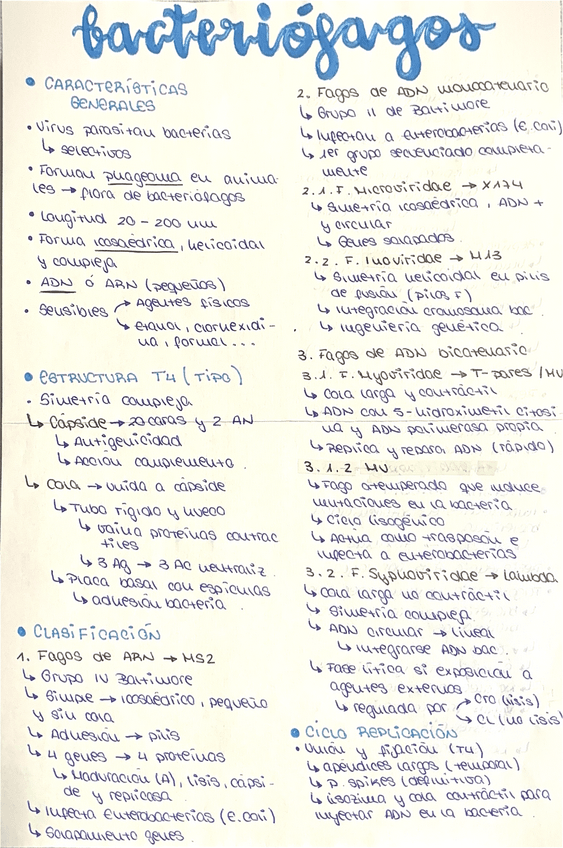 bacteriófagos
• CARACTERÍSTICAS
GENERALES
• Virus parasitan bacterias
↳ selectivos
• Forman phageoma en anima-
les → flora de bacteriófagos
• Longitud 20 - 200 nm
• Forma icosaédrica, helicoidal
y compleja
• ADN ó ARN (pequeños)
• Sensibles → Agentes físicos
↳ etanol, clorhexidi-
na, formol...
• ESTRUCTURA T4 (TIPO)
• Simetría compleja
↳ Cápside → 20 caras y 2 AN
↳ Antigenicidad
↳ Acción complemento
↳ Cola → unida a cápside
↳ Tubo rígido y hueco
↳ vaina proteínas contrac
tiles
↳ 3 Ag → 3 AC neutraliz.
↳ Placa basal con espículas
↳ adhesión bacteria
• CLASIFICACIÓN
1. Fagos de ARN → MS2
↳ Grupo IV Baltimore
↳ Simple → icosaédrico, pequeño
y sin cola
↳ Adhesión → pilis
↳ 4 genes → 4 proteínas
↳ Maduración (A), lisis, cápsi-
de y replicasa
↳ Infecta Enterobacterias (E.coli)
↳ Solapamiento genes
2. Fagos de ADN monocatenario
↳ Grupo II de Baltimore
↳ Infectan a enterobacterias (E.coli)
↳ 1er grupo secuenciado completa-
mente
2.1. F. Microviridae → X174
↳ Simetría icosaédrica, ADN +
y circular
↳ Genes solapados
2.2. F. Inoviridae → M13
↳ Simetría helicoidal en pilis
de fusión (pilos F)
↳ Integración cromosoma bac.
↳ Ingeniería genética
3. Fagos de ADN bicatenario
3.1. F. Myoviridae → T-pares / MU
↳ Cola larga y contráctil
↳ ADN con 5-hidroximetil citosi
na y ADN polimerasa propia
↳ Replica y repara ADN (rápido)
3.1.2 MU
↳ Fago atemperado que induce
mutaciones en la bacteria
↳ Ciclo lisogénico
↳ Actúa como trasposón e
infecta a enterobacterias
3.2. F. Syphoviridae → lambda
↳ Cola larga no contráctil
↳ Simetría compleja
↳ ADN circular → lineal
↳ integrarse ADN bac.
↳ Fase lítica si exposición a
agentes externos
↳ regulada por → Cro (lisis)
↳ CL (no lisis)
• CICLO REPLICACIÓN
• Unión y fijación (T4)
↳ apéndices largos (temporal)
↳ P. spikes (definitiva)
↳ lisozima y cola contráctil para
inyectar ADN en la bacteria